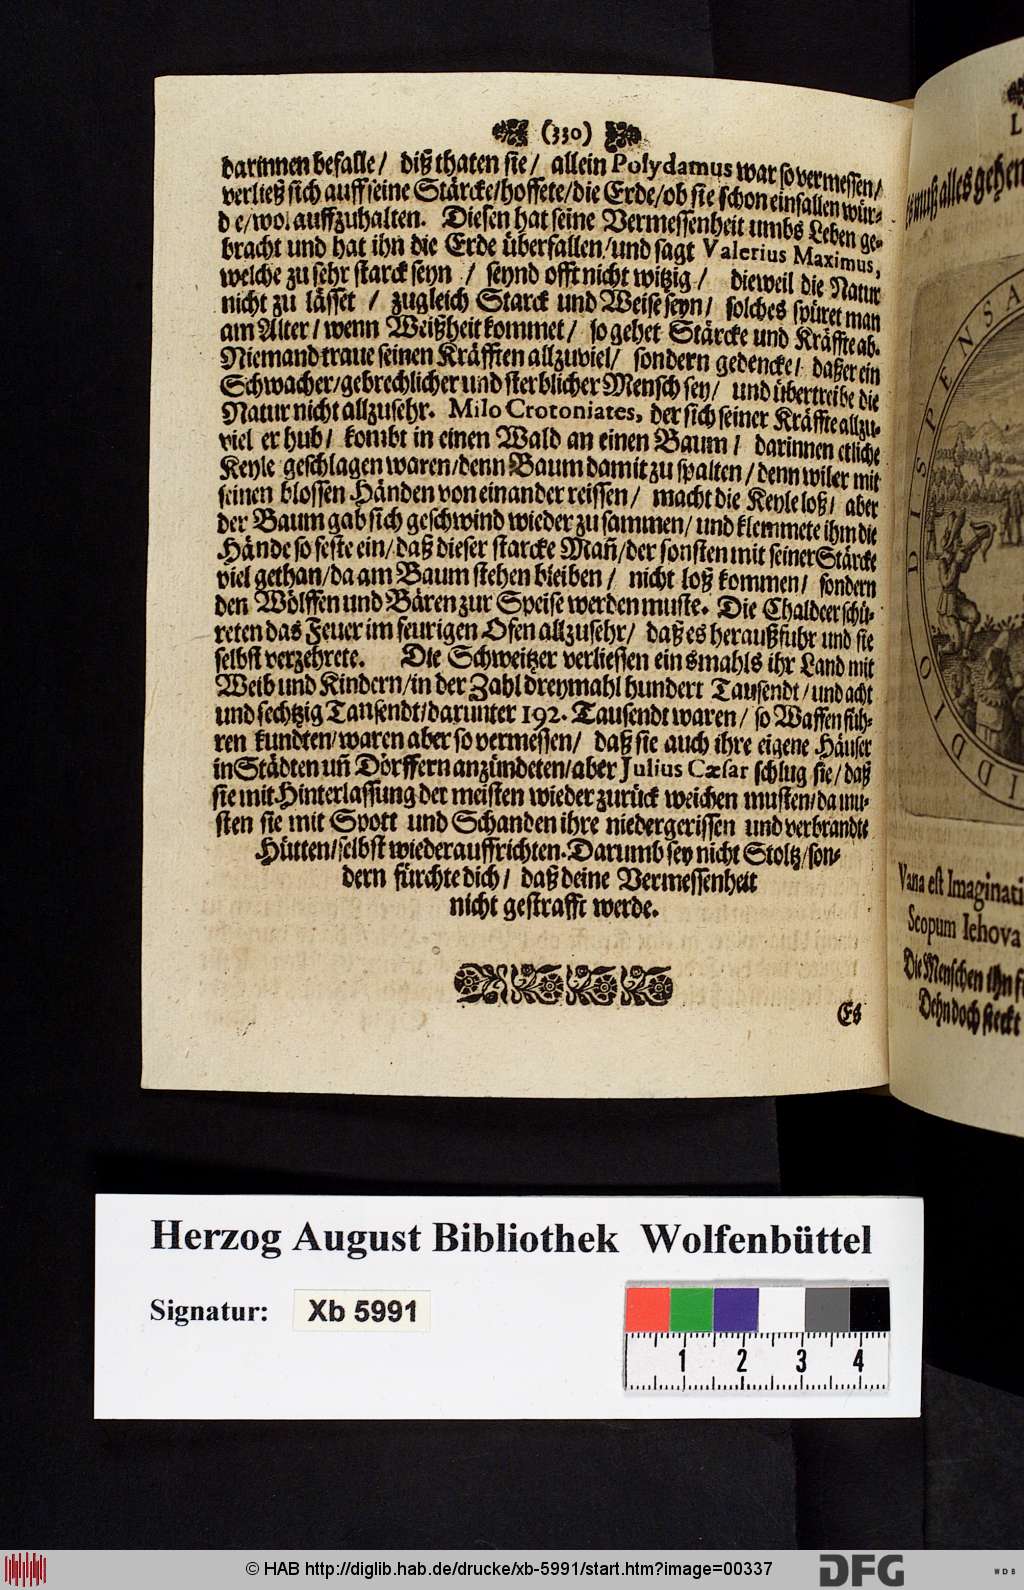 (330)
darinnen befalle/ diß thaten sie/ allein Polydamus war so vermessen/
verließ sich auff seine Stärcke/hoffete/die Erde/ob sie schon einfallen wür-
de/wol auffzuhalten. Diesen hat seine Vermessenheit umbs Leben ge-
bracht und hat ihn die Erde überfallen/und sagt Valerius Maximus,
welche zu sehr starck seyn / seynd offt nicht witzig/ dieweil die Natur
nicht zu lässet / zugleich Starck und Weise seyn/ solches spüret man
am Alter/wenn Weißheit kommet/ so gehet Stärcke und Kräffte ab.
Niemand traue seinen Kräfften allzuviel/ sondern gedencke/ daß er ein
Schwacher/gebrechlicher und sterblicher Mensch sey/ und übertreibe die
Natur nicht allzusehr. Milo Crotoniates, der sich seiner Kräffte allzu-
viel er hub/ kombt in einen Wald an einen Baum/ darinnen etliche
Keyle geschlagen waren/denn Baum damit zu spalten/denn wil er mit
seinen blossen Händen von einander reissen/ macht die Keyle loß/ aber
der Baum gab sich geschwind wieder zusammen/und klemmete ihm die
Hände so feste ein/daß dieser starcke Mañ/der sonsten mit seiner Stärcke
viel gethan/da am Baum stehen bleiben/ nicht loß kommen/ sondern
den Wölffen und Bären zur Speise werden muste. Die Chaldeer schü-
reten das Feuer im feurigen Ofen allzusehr/ daß es heraußfuhr und sie
selbst verzehrete. Die Schweitzer verliessen einsmahls ihr Land mit
Weib und Kindern/in der Zahl dreymahl hundert Tausendt/und acht
und sechtzig Tausendt/darunter 192. Tausendt waren/ so Waffen füh-
ren kundten/waren aber so vermessen/ daß sie auch ihre eigene Häuser
in Städten uñ Dörffern anzündeten/aber Julius Cæsar schlug sie/daß
sie mit Hinterlassung der meisten wieder zurück weichen musten/da mu-
sten sie mit Spott und Schanden ihre niedergerissen und verbrandte
Hütten/selbst wiederauffrichten. Darumb sey nicht Stoltz/son-
dern fürchte dich/ daß deine Vermessenheit
nicht gestrafft werde.
Es
L
Es muß alles gehen
IDDIO DISPENSA
Vana est Imaginati
Scopum Iehova
Die Menschen ihn f
Dehn doch steckt
Herzog August Bibliothek Wolfenbüttel
Signatur: Xb 5991
1 2 3 4
© HAB http://diglib.hab.de/drucke/xb-5991/start.htm?image=00337
DFG
WDB